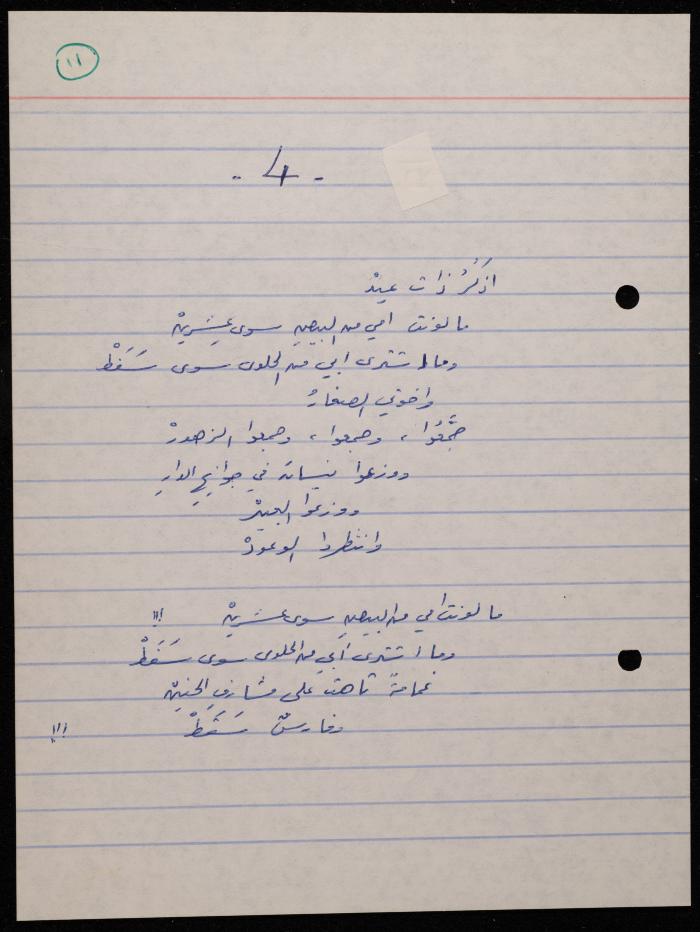 ١١
- 4 -
اذكُرُ ذات عيدْ
ما لونت امي من البيضِ سوى عشرينْ
وما اشترى ابي من الحلوى سوى سَفَطْ
واخوتي الصغارُ
جمَّعُوا ، وجمعوا ، وجمعوا الزهورْ
ووزعوا نيسانَ في جوانحِ الدارِ
ووزعوا العبيرْ
وانتظروا الوعودْ
ما لونت امي من البيضِ سوى عشرينْ !!!
وما اشترى أبي من الحلوى سوى سَفَطْ
غمامةً تاهت على مشارفِ الحنينْ
وفارسٌ سَقَطْ !!!